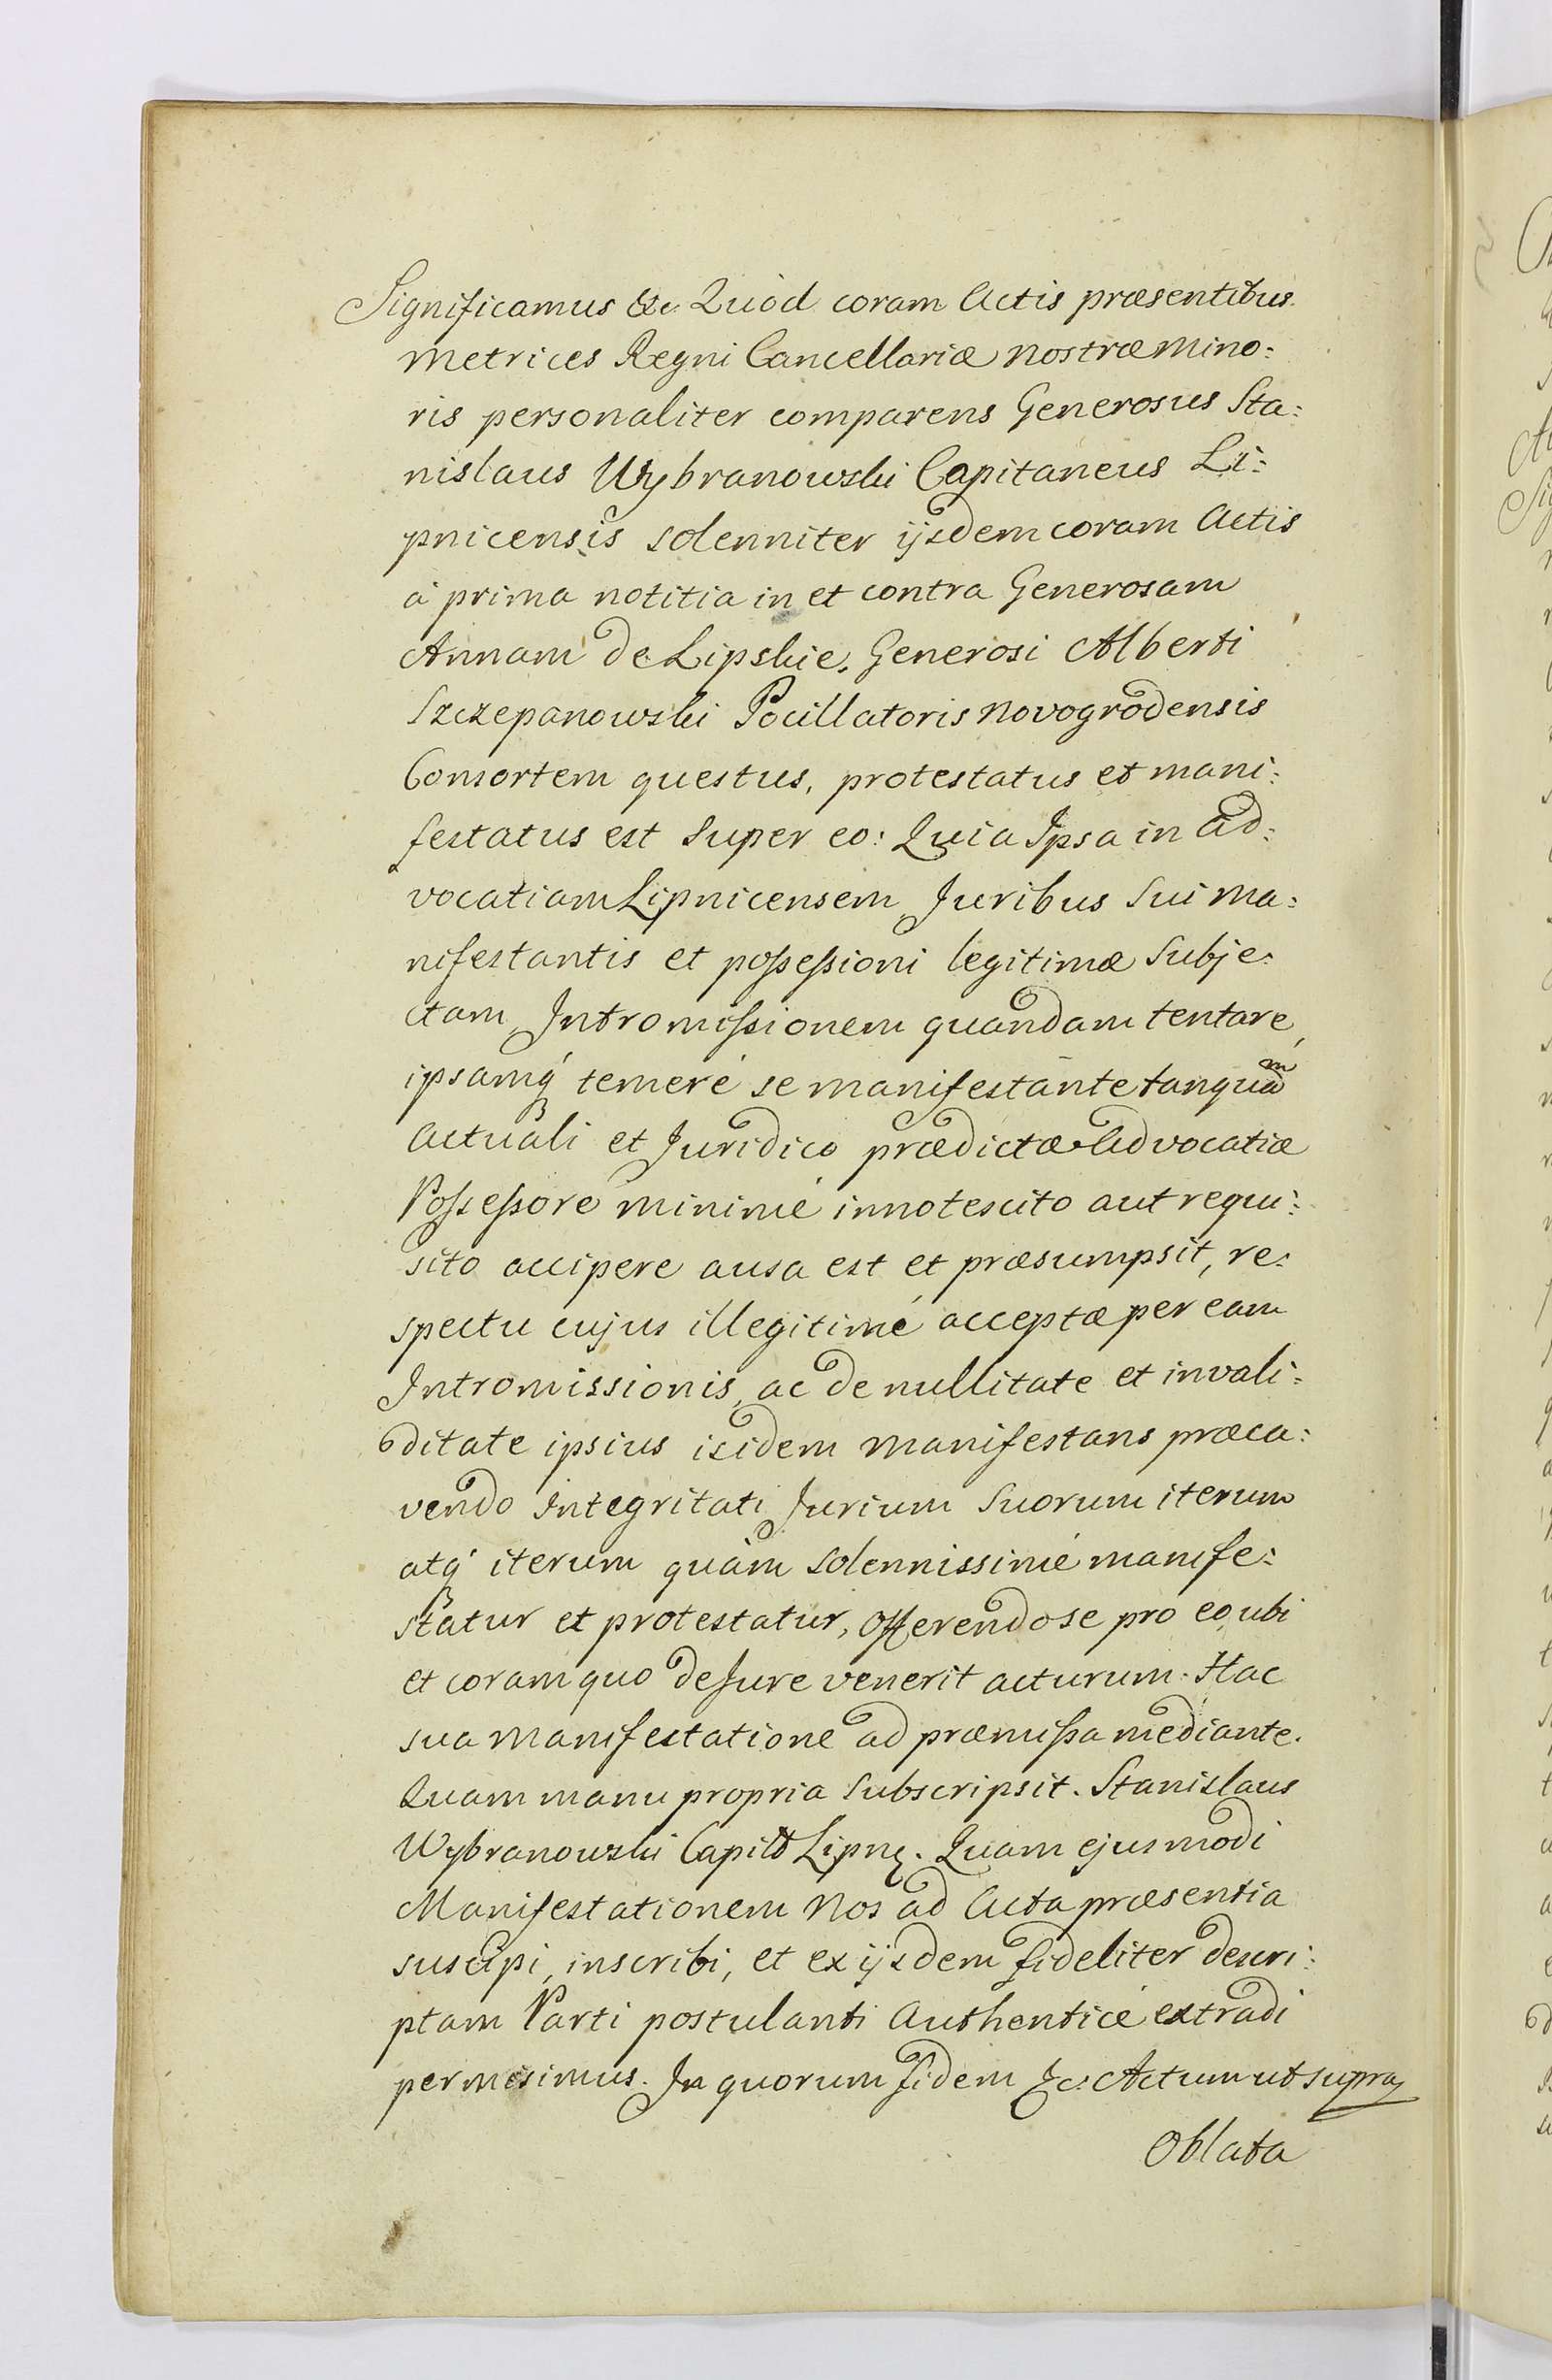 Significamus &c. Quòd coram Actis præsentibus
Metrices Regni Cancellariæ nostræ Mino:
ris personaliter comparens Generosus Sta:
nislaus Wybranowski Capitaneus Li:
pnicensis solenniter ijsdem coram Actis
à prima notitia in et contra Generosam
Annam de Lipskie, Generosi Alberti
Szczepanowski Pocillatoris Novogrodensis
Consortem questus, protestatus et mani:
festatus est super eo: Quia Ipsa in Ad:
vocatiam Lipnicensem Juribus sui Ma:
nifestantis et possessioni legitimæ subje:
ctam, Intromissionem quandam tentare,
ipsamq́ temeré se manifestante tanquam
Actuali et Juridico prædictæ Advocatiæ
Possessore minimé innotescito aut requi:
sito accipere ausa est et præsumpsit, re:
spectu cujus illegitimé acceptæ per eam
Intromissionis, ac de nullitate et invali:
ditate ipsius isidem Manifestans præca:
vendo Integritati Jurium suorum iterum
atq́ iterum quàm solennissimé manife:
statur et protestatur, offerendo se pro eo, ubi
et coram quo de Jure venerit acturum. Hac
sua Manifestatione ad præmissa mediante.
Quam manu propria subscripsit. Stanislaus
Wybranowski Capitt Lipnę. Quam ejusmodi
Manifestationem Nos ad Acta præsentia
suscipi, inscribi, et ex ijsdem fideliter descri:
ptam Parti postulanti Authenticé extradi
permisimus. In quorum fidem &c. Actum ut supra
Oblata